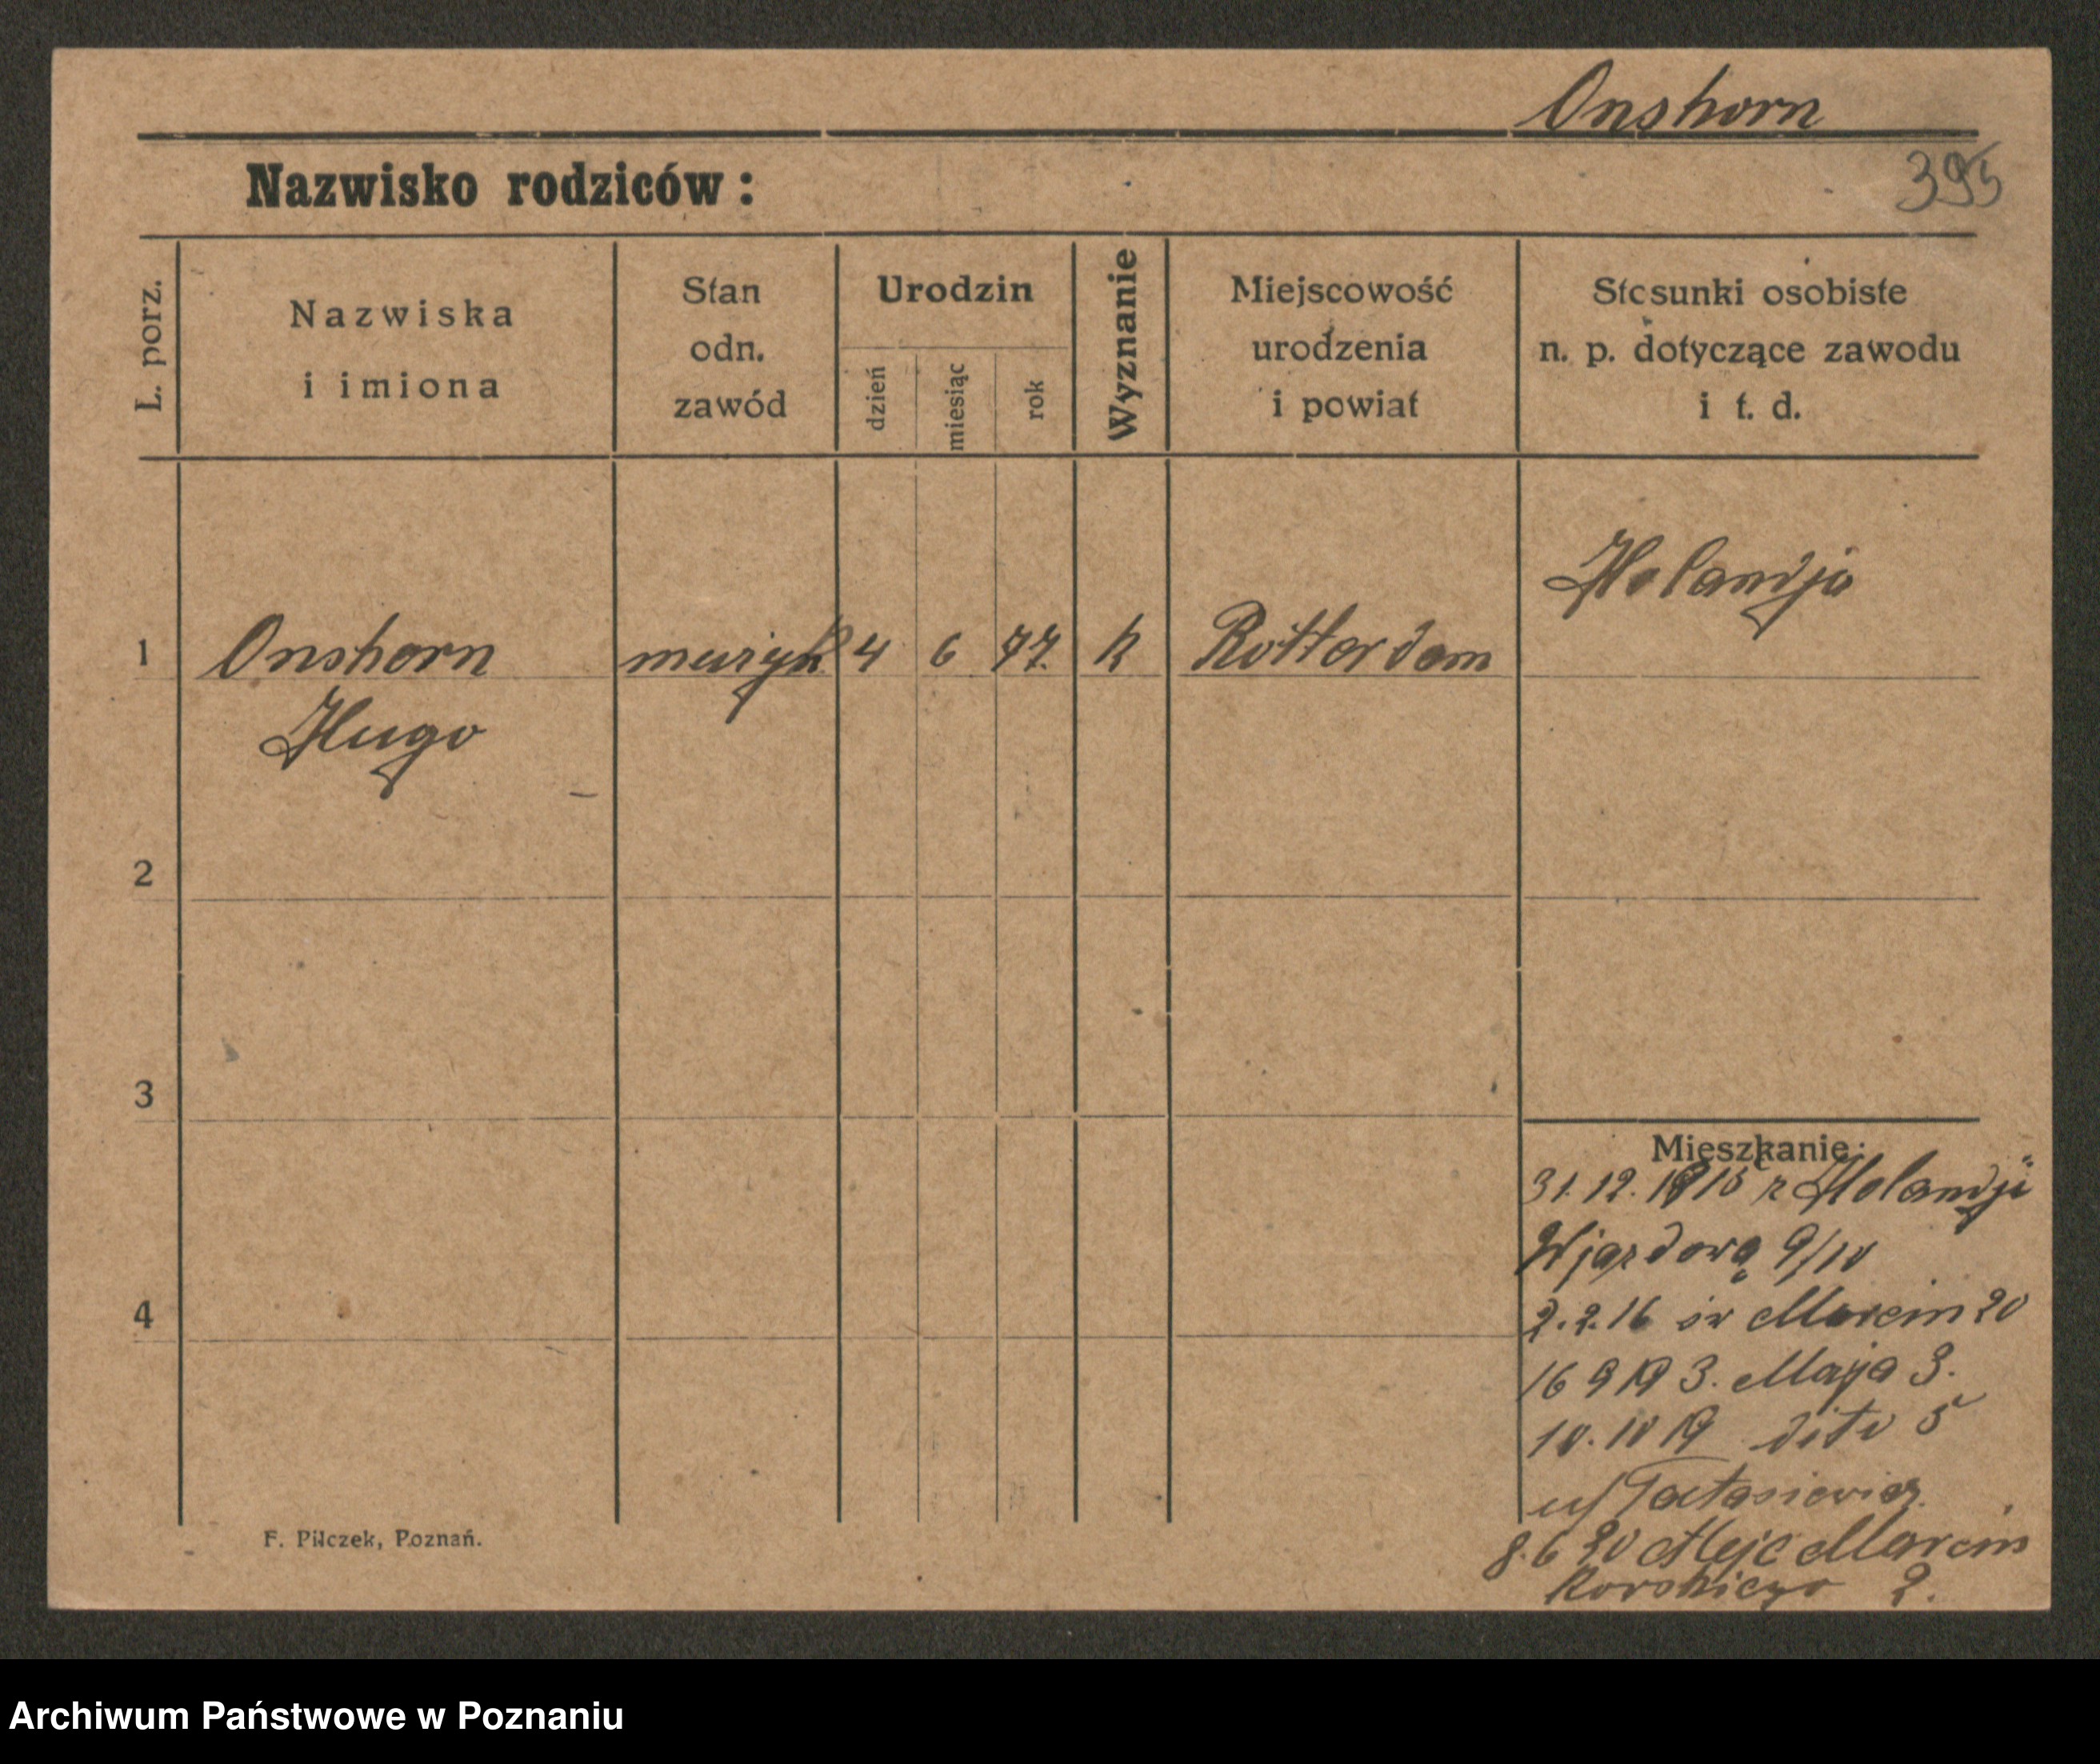 Onshorn
395
Nazwisko rodziców:
L. porz.
Nazwiska
i imiona
Stan
odn.
zawód
Urodzin
dzień
miesiąc
rok
Wyznanie
Miejscowość
urodzenia
i powiat
Stosunki osobiste
n. p. dotyczące zawodu
i t. d.
Holandja
1 Onshorn muzyk 4 6 77. k Rotterdam
Hugo
2
3
4
Mieszkanie:
31.12.1915 z Holandji
Wjazdową 9/10
2.2.16 św Marcin 20
16 9 19 3. Maja 3.
10.10 19 dito 5
u/
8.6 20 Aleje Marcin
kowskiego 2.
F. Pilczek, Poznań.
Archiwum Państwowe w Poznaniu